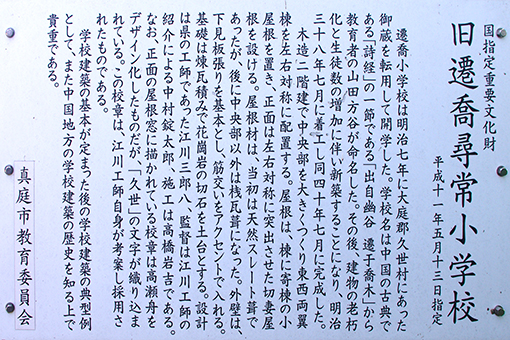 国指定重要文化財
旧遷喬尋常小学校
平成十一年五月十三日指定
遷喬小学校は明治七年に大庭郡久世村にあった
御蔵を転用して開学した。学校名は中国の古典で
ある「詩経」の一節である「出自幽谷 遷于喬木」から
教育者の山田方谷が命名した。その後、建物の老朽
化と生徒数の増加に伴い新築することになり、明治
三十八年七月に着工し同四十年七月に完成した。
木造二階建で中央部を大きくつくり東西両翼
棟を左右対称に配置する。屋根は、棟に寄棟の小
屋根を置き、正面は左右対称に突出させた切妻屋
根を設ける。屋根材は、当初は天然スレート葺で
あったが、後に中央部以外は桟瓦葺になった。外壁は、
下見板張りを基本とし、筋交いをアクセントで入れる。
基礎は煉瓦積みで花崗岩の切石を土台とする。設計
は県の工師であった江川三郎八、監督は江川工師の
紹介による中村錠太郎、施工は高橋岩吉である。
なお、正面の屋根窓に描かれている校章は高瀬舟を
デザイン化したものだが、「久世」の文字が織り込ま
れている。この校章は、江川工師自身が考案し採用さ
れたものである。
学校建築の基本が定まった後の学校建築の典型例
として、また中国地方の学校建築の歴史を知る上で
貴重である。
真庭市教育委員会